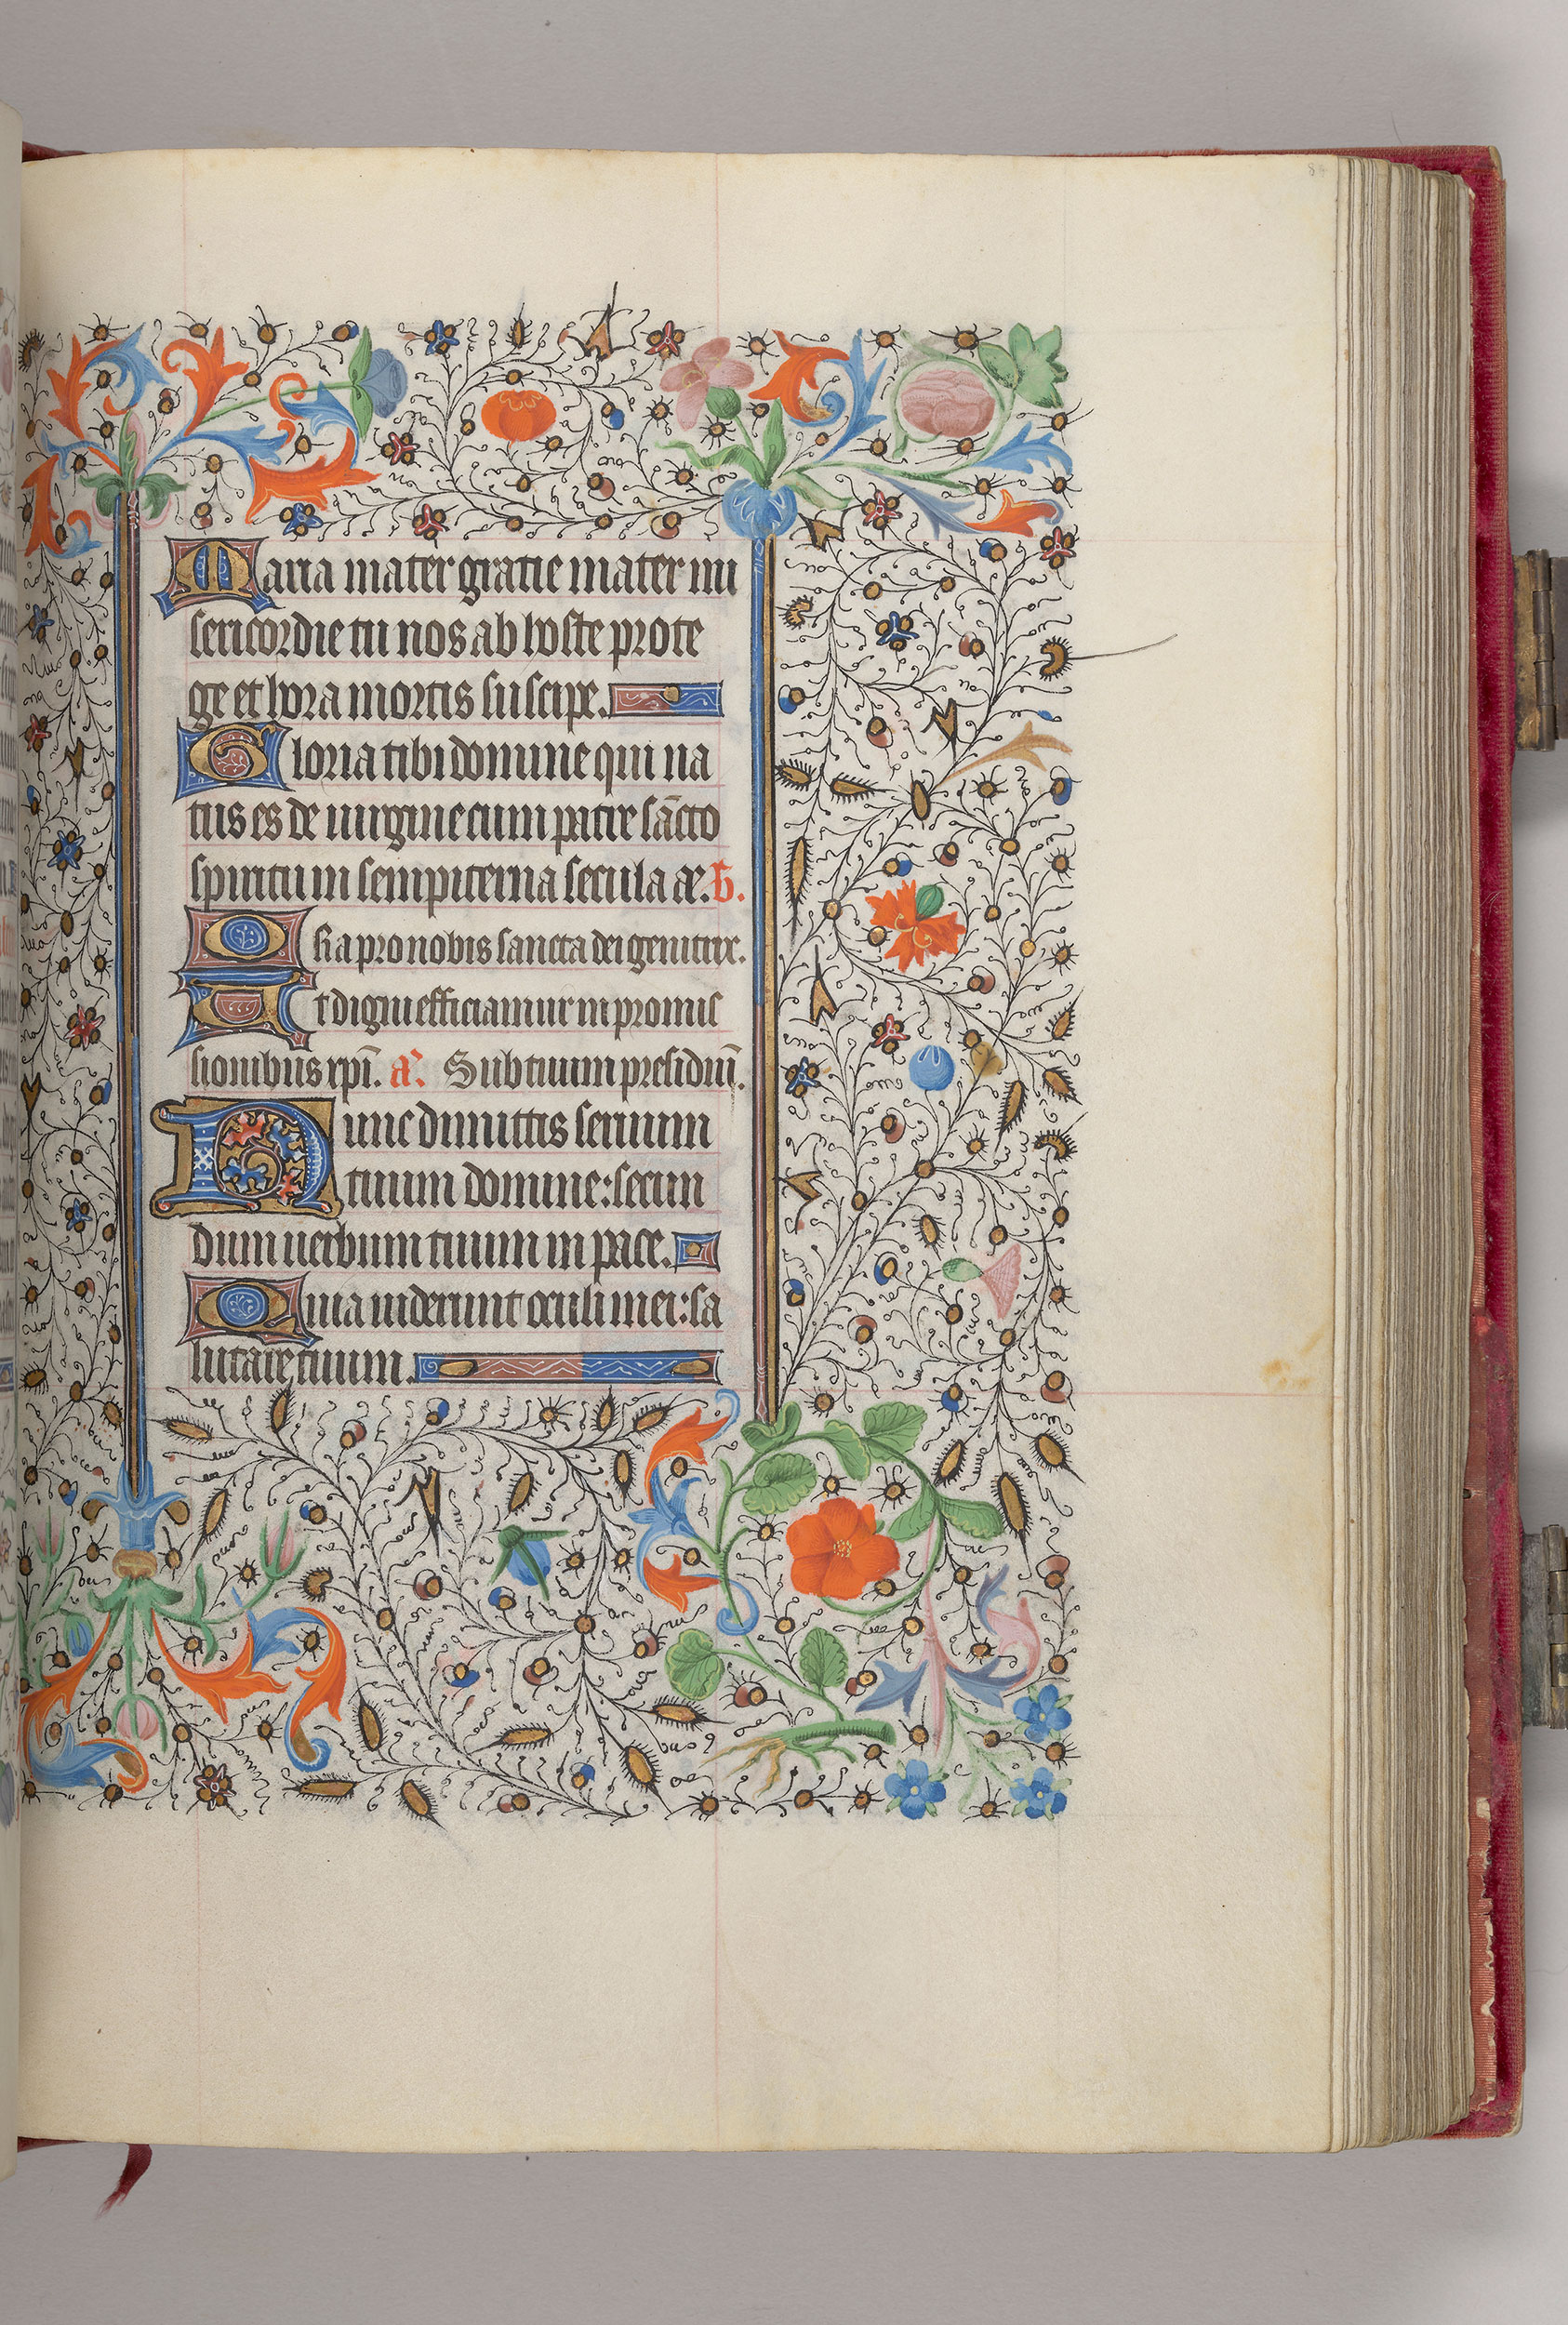 Maria mater gratie mater mi
sericordie tu nos ab hoste prote
ge et hora mortis suscipe.
Gloria tibi domine qui na
tus es de uirgine cum patre sācto
spiritu in sempiterna secula aē.
Ora pro nobis sancta dei genitrix.
Vt digni efficiamur in promis
sionibus xpī. a᷑. Sub tuum presidiū.
Nunc dimittis seruum
tuum domine: secun
dum uerbum tuum in pace.
Quia uiderunt oculi mei: sa
lutare tuum.